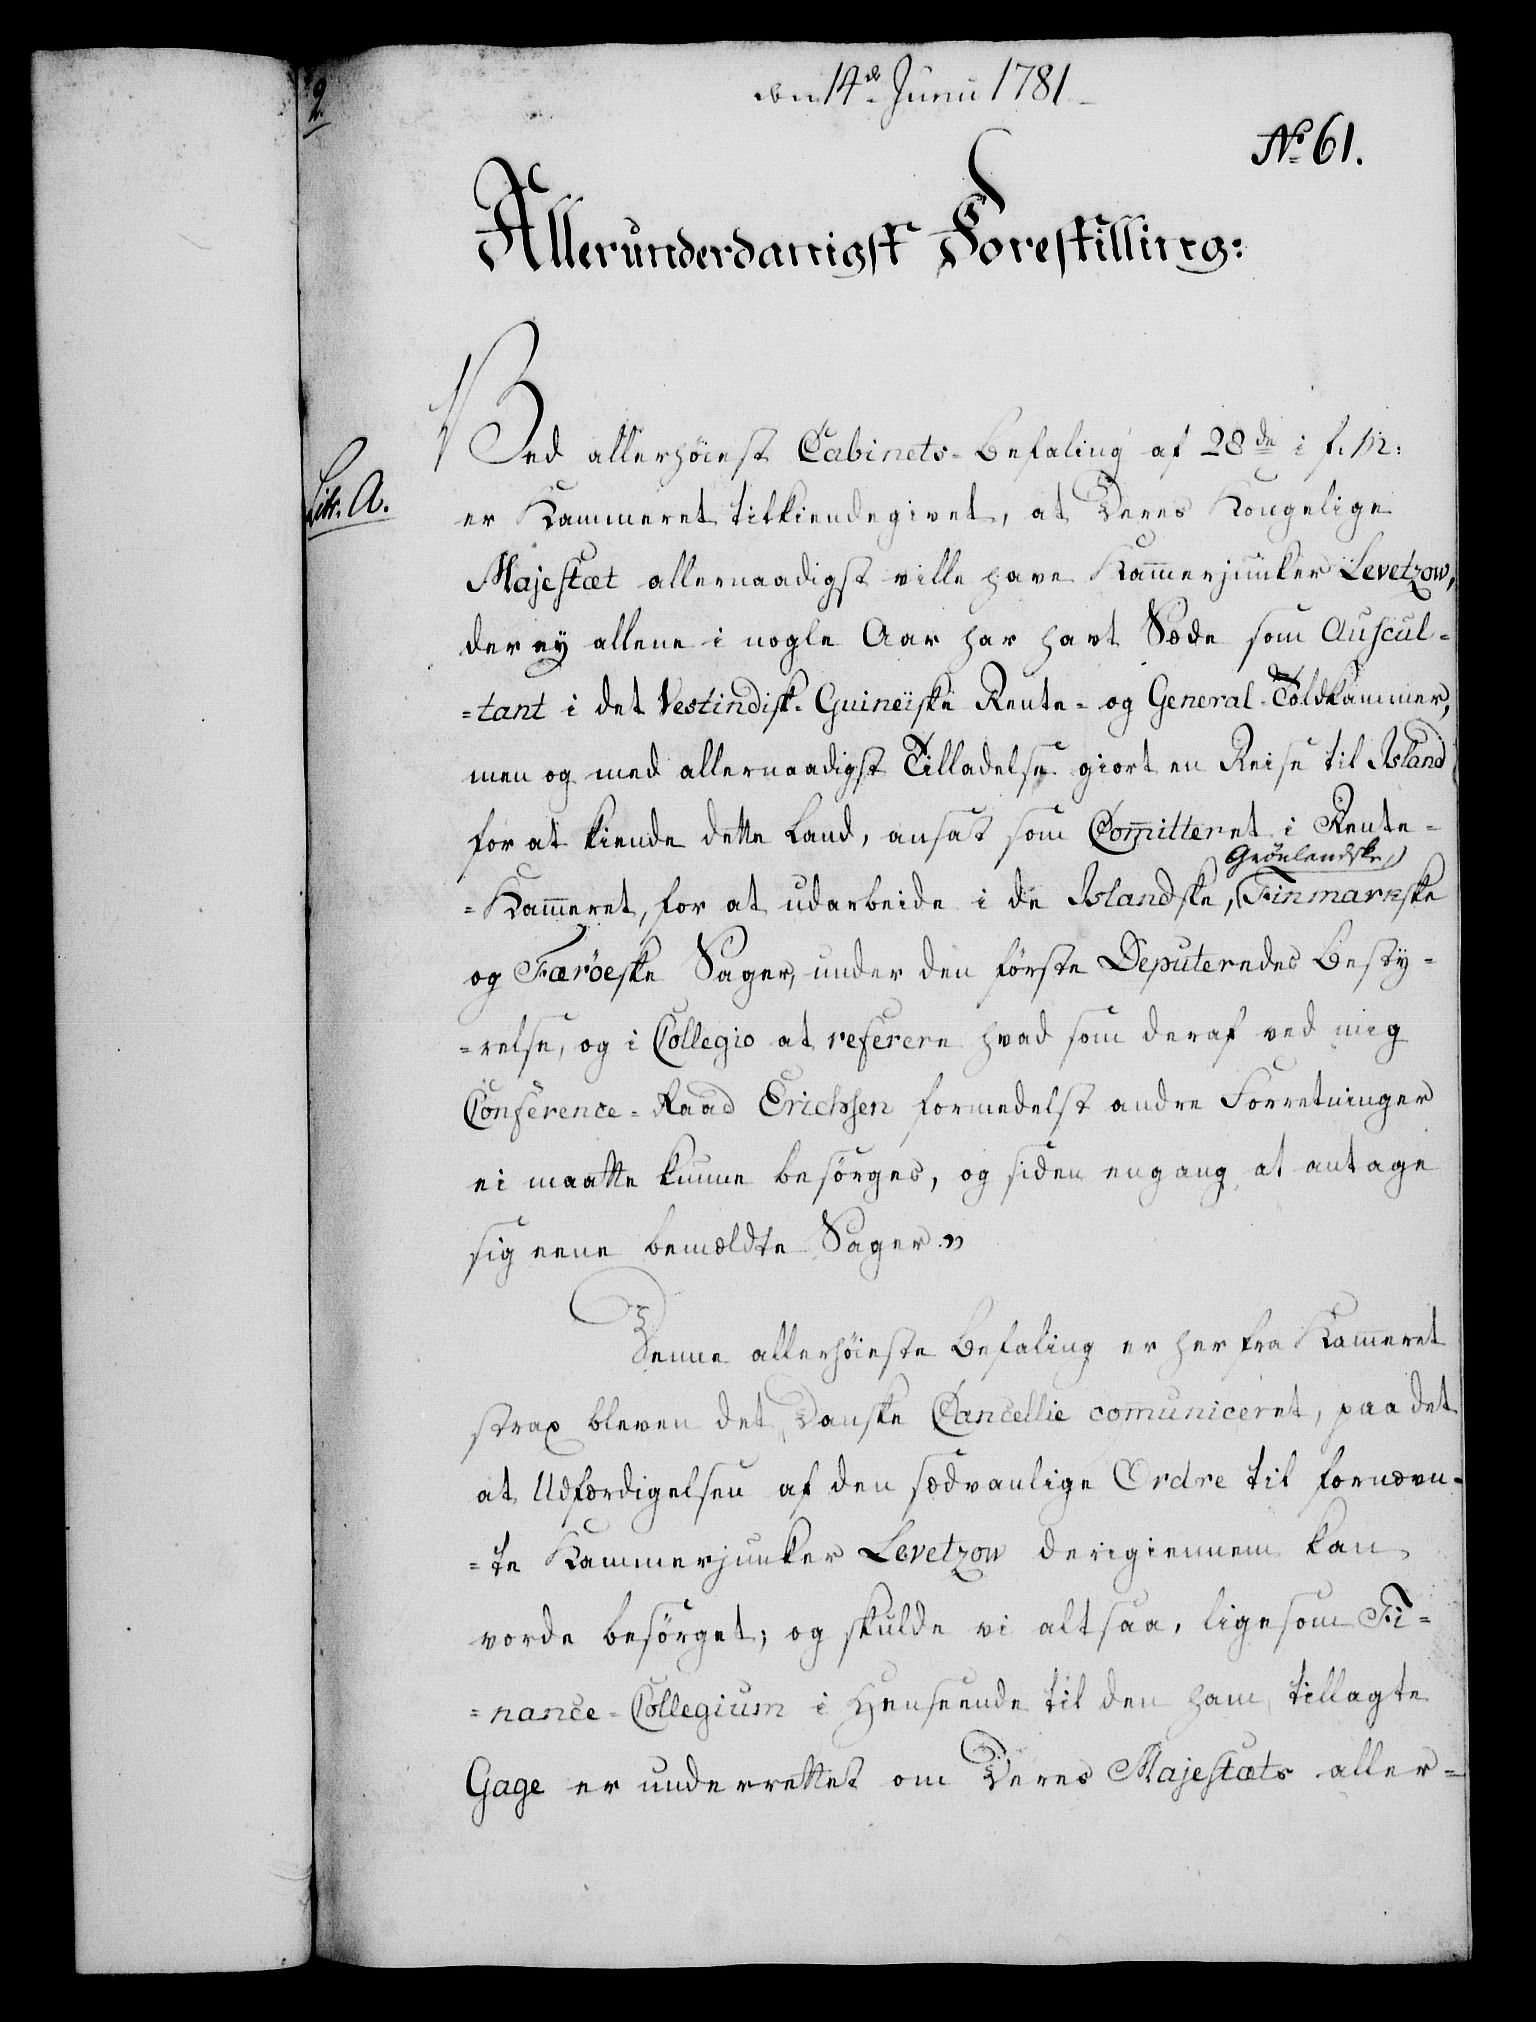 den 14de Junii 1781
No 61.
Allerunderdanigst Forestilling:
Ved allerhöiest Cabinets-Befaling af 28de i f. M:
Litr. A.
er Kammeret tilkiendegivet, at Deres Kongelige
Majestæt allernaadigst ville have Kam̅erjunker Levetzow,
der ey allene i nogle Aar har havt Sæde som Auscul-
-tant i det Vestindisk-Guineiske Rente- og General-Toldkammer,
men og med allernaadigst Tilladelse giort en Reise til Island
for at kiende dette Land, ansat som Com̅itteret i Rente-
Grönlandske,
-Kam̅eret, for at udarbeide i de Islandske, Finmarkske
og Færöeske Sager, under den förste Deputeredes Besty-
-relse, og i Collegio at referere hvad som deraf ved mig
Conference-Raad Erichsen formedelst andre Forretninger
ei maatte kunne besörges, og siden engang at antage
sig eene bemældte Sager.
Denne allerhöieste Befaling er her fra Kam̅eret
strax bleven det Danske Cancellie com̅uniceret, paa det
at Udfærdigelsen af den sædvanlige Ordre til fornævn-
-te Kammerjunker Levetzow derigiennem kan
vorde besörget; og skulde vi altsaa, ligesom Fi-
-nance-Collegium i Henseende til den ham tillagte
Gage er underrettet om Deres Majestæts aller-